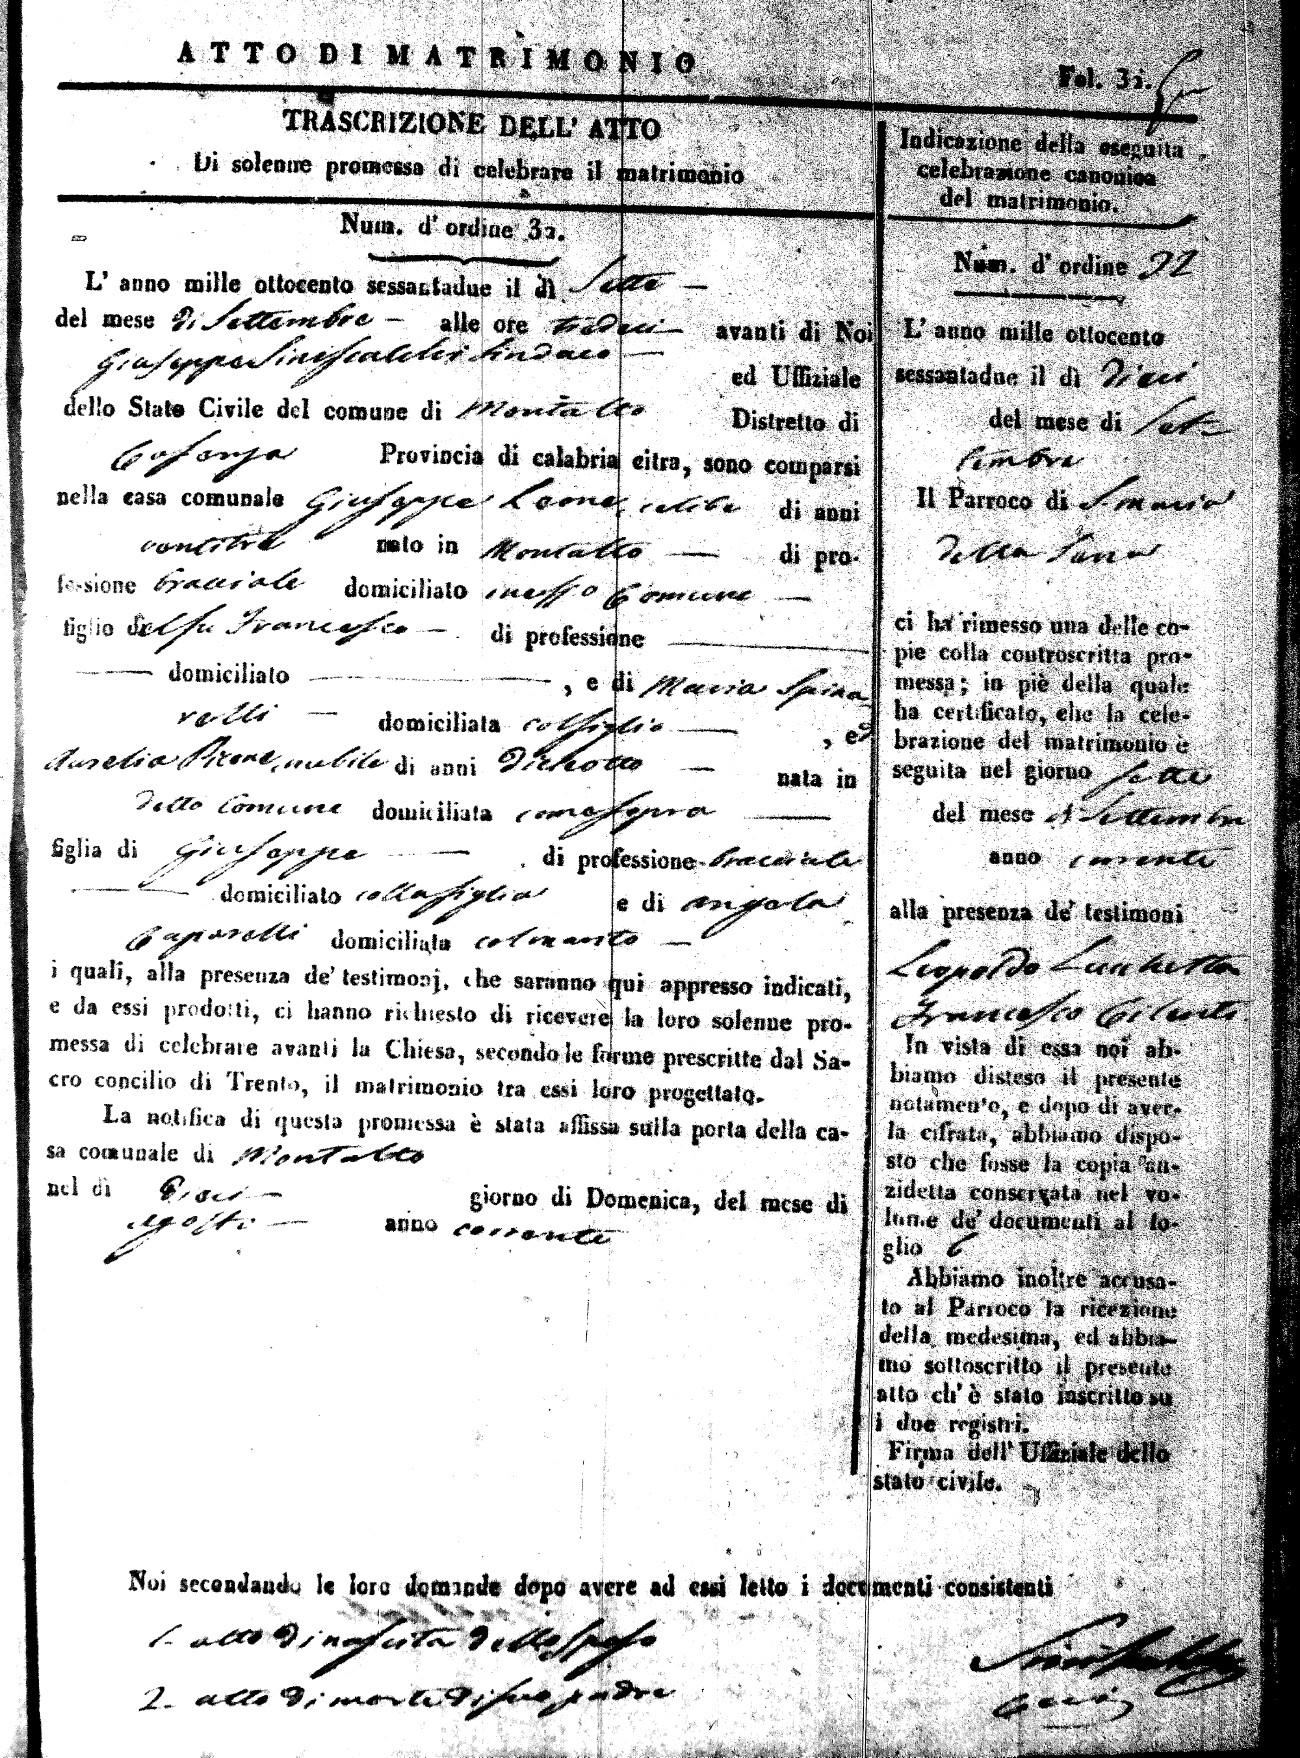 ATTO DI MATRIMONIO
Fol. 32.
TRASCRIZIONE DELL' ATTO
Di solenne promessa di celebrare il matrimonio
Num. d' ordine 32.
L' anno mille ottocento sessantadue il dì Sette
del mese di Settembre alle ore tredeci avanti di Noi
Giuseppe Siniscalchi Sindaco
ed Uffiziale
dello Stato Civile del comune di Montalto Distretto di
Cosenza Provincia di calabria citra, sono comparsi
nella casa comunale Giuseppe Leone, celibe di anni
ventitre nato in Montalto di pro-
fessione bracciale domiciliato in esso Comune
figlio del fu Francesco di professione
domiciliato , e di Maria Spina
relli domiciliata col figlio , ed
Aurelia Pirone, nubile di anni diciotto nata in
detto Comune domiciliata come sopra
figlia di Giuseppe di professione bracciale
domiciliato colla figlia e di Angela
Caparelli domiciliata col marito
i quali, alla presenza de' testimonj, che saranno qui appresso indicati,
e da essi prodotti, ci hanno richiesto di ricevere la loro solenne pro-
messa di celebrare avanti la Chiesa, secondo le forme prescritte dal Sa-
cro concilio di Trento, il matrimonio tra essi loro progettato.
La notifica di questa promessa è stata affissa sulla porta della ca-
sa comunale di Montalto
nel dì Dieci giorno di Domenica, del mese di
Agosto anno corrente
Indicazione della eseguita
celebrazione canonica
del matrimonio.
Num. d' ordine 32
L' anno mille ottocento
sessantadue il dì Dieci
del mese di Set-
tembre
Il Parroco di S. Maria
della
ci ha rimesso una delle co-
pie colla controscritta pro-
messa; in piè della quale
ha certificato, che la cele-
brazione del matrimonio è
seguita nel giorno sette
del mese di Settembre
anno corrente
alla presenza de' testimoni
Leopoldo Luchetta
Francesco Cilento
In vista di essa noi ab-
biamo disteso il presente
notamento, e dopo di aver-
la cifrata, abbiamo dispo-
sto che fosse la copia an-
zidetta conservata nel vo-
lume de' documenti al fo-
glio 6
Abbiamo inoltre accusa-
to al Parroco la ricezione
della medesima, ed abbia-
mo sottoscritto il presente
atto ch' è stato inscritto su
i due registri.
Firma dell' Uffiziale dello
stato civile.
Noi secondando le loro domande dopo avere ad essi letto i documenti consistenti
1- atto di nascita dello sposo
2- atto di morte di suo padre
Siniscalchi